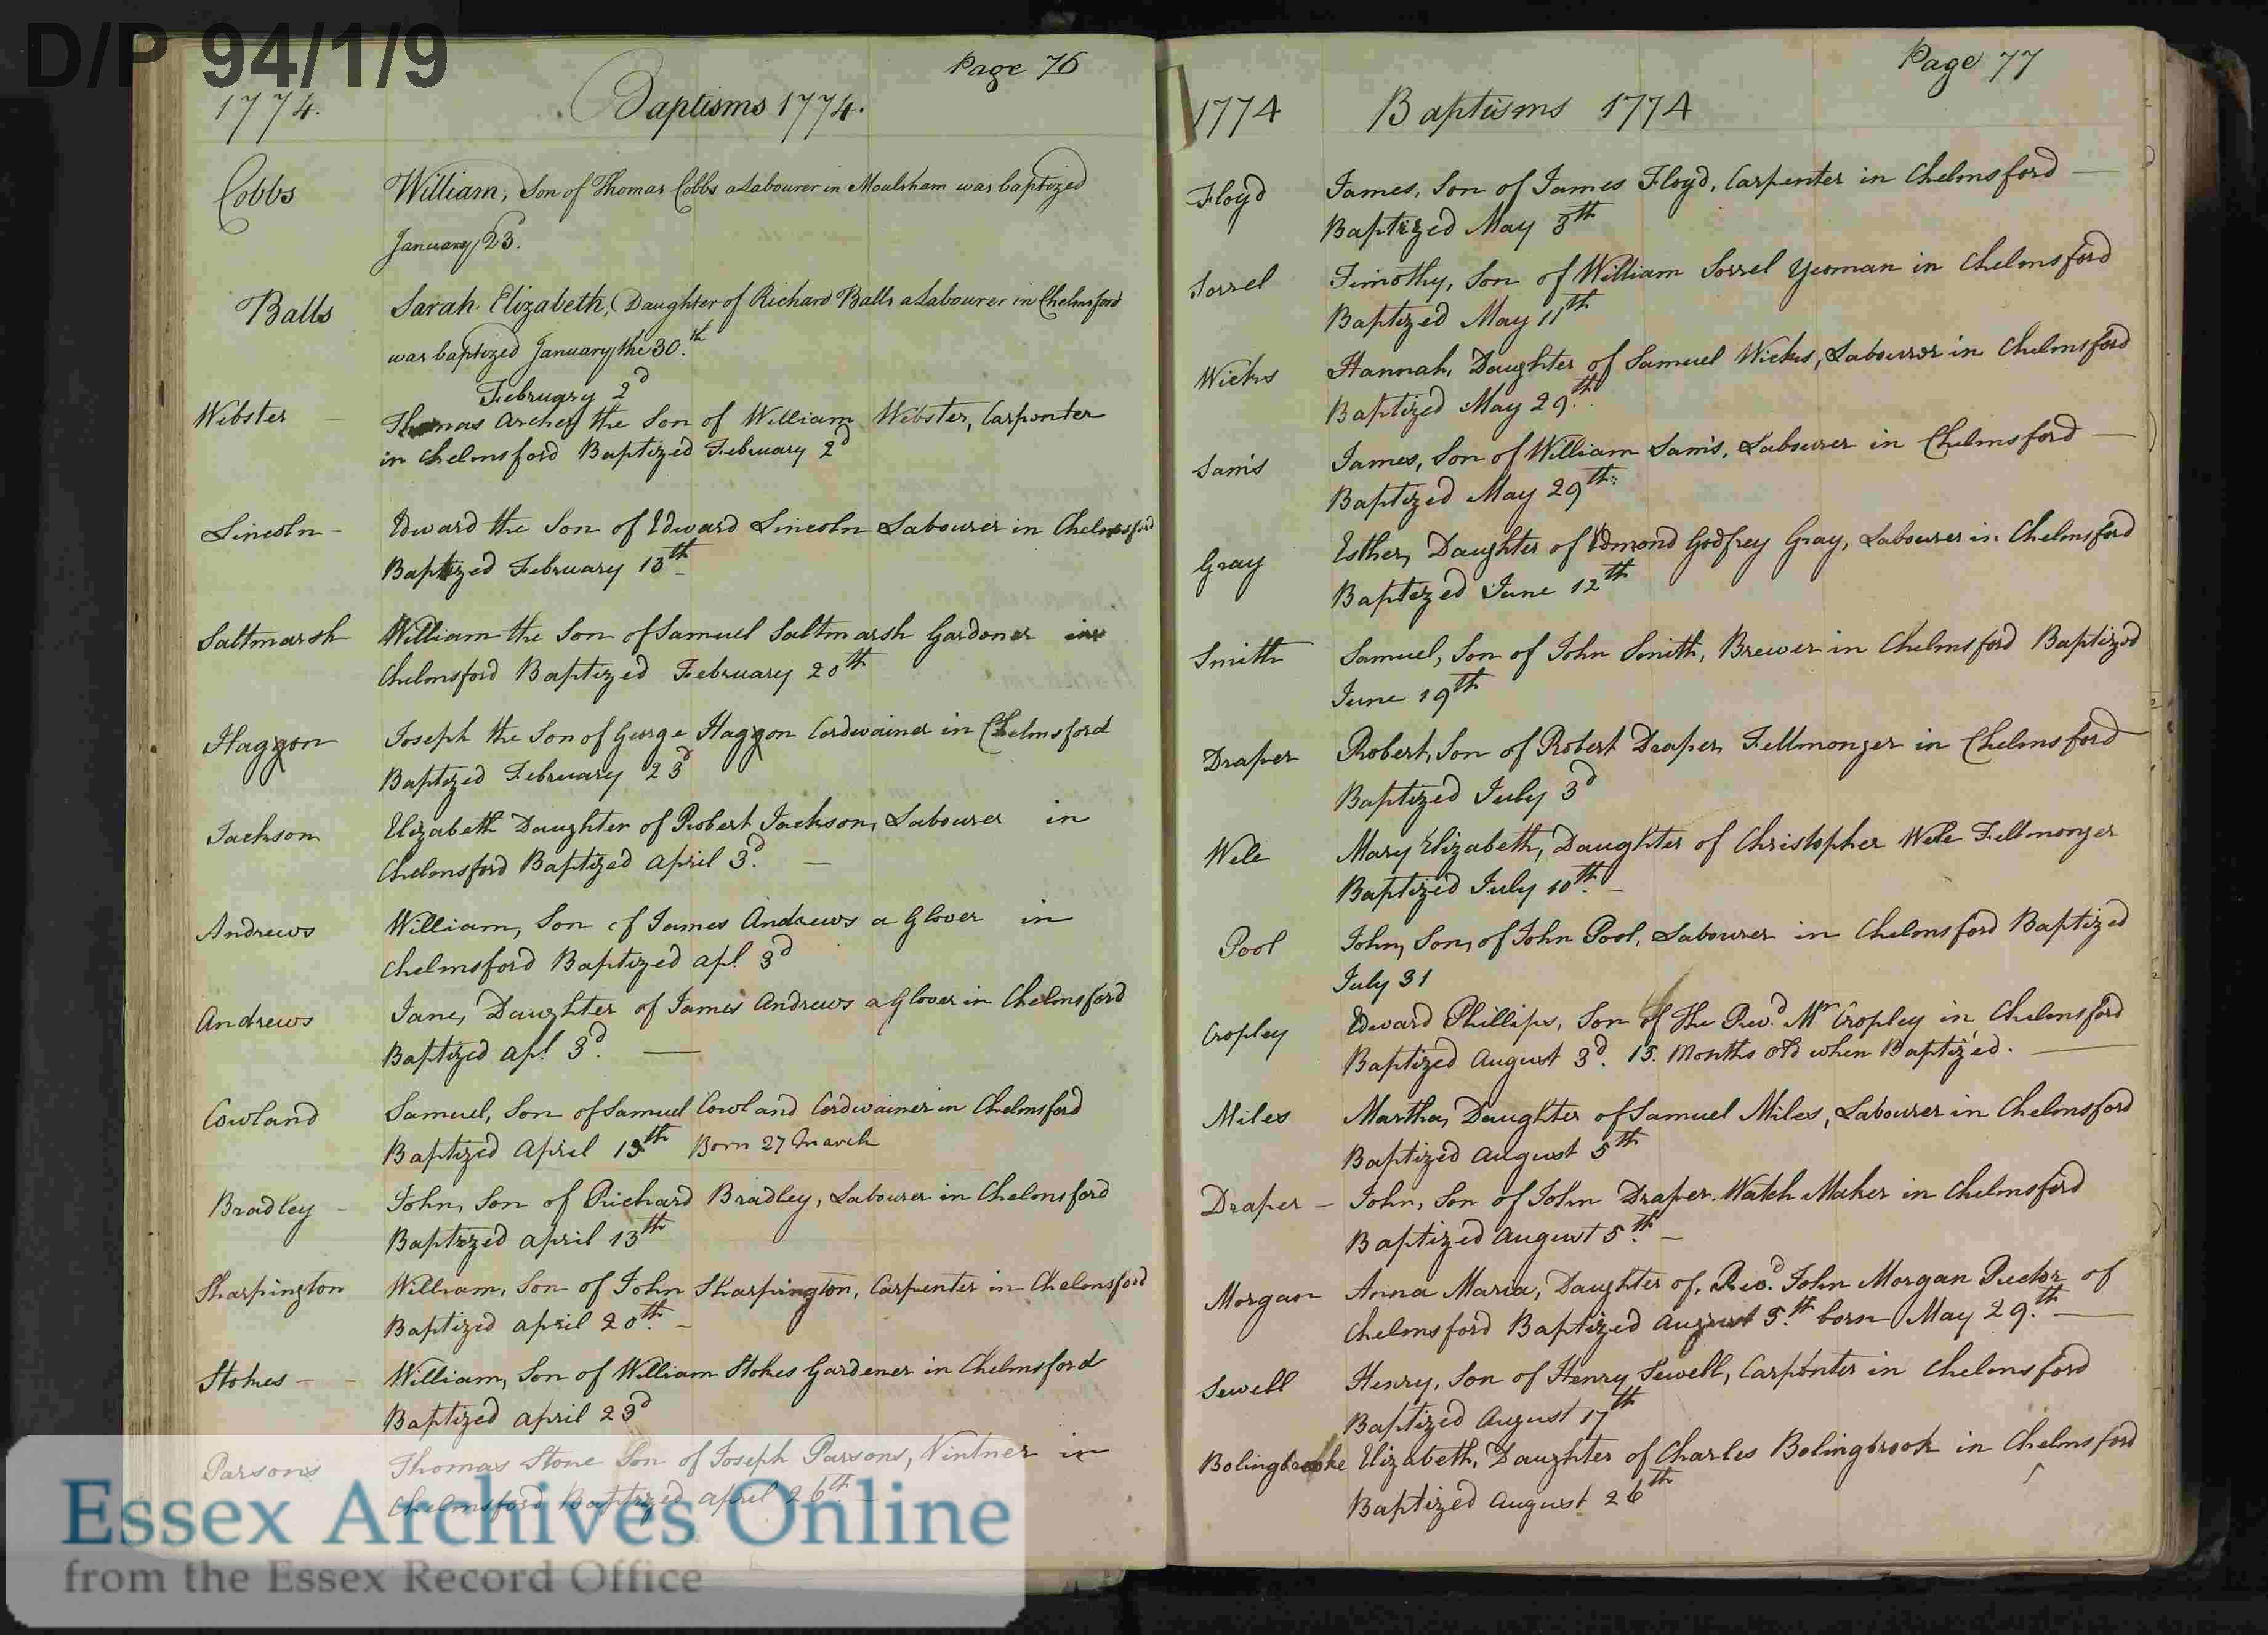 D/P 94/1/9
Page 76
1774. Baptisms 1774.
Cobbs William, Son of Thomas Cobbs a Labourer in Moulsham was baptized
January 23.
Balls Sarah Elizabeth, Daughter of Richard Balls a Labourer in Chelmsford
was baptized January the 30.th
February 2d
Webster – Thomas Archer the Son of William Webster, Carpenter
in Chelmsford Baptized February 2d
Lincoln – Edward the Son of Edward Lincoln Labourer in Chelmsford
Baptized February 13th
Saltmarsh William the Son of Samuel Saltmarsh Gardener in
Chelmsford Baptized February 20th
Haggon Joseph the Son of George Haggon Cordwainer in Chelmsford
Baptized February 23d
Jackson Elizabeth Daughter of Robert Jackson, Labourer in
Chelmsford Baptized April 3d. —
Andrews William, Son of James Andrews a Glover in
Chelmsford Baptized apl. 3d
Andrews Jane, Daughter of James Andrews a Glover in Chelmsford
Baptized apl. 3d. —
Cowland Samuel, Son of Samuel Cowland Cordwainer in Chelmsford
Baptized April 13th Born 27 March
Bradley – John, Son of Richard Bradley, Labourer in Chelmsford
Baptized april 13th
Sharpington William, Son of John Sharpington, Carpenter in Chelmsford
Baptized april 20th. –
Stokes – – William, Son of William Stokes Gardener in Chelmsford
Baptized april 23d
Parsons Thomas Stone Son of Joseph Parsons, Vintner in
Chelmsford Baptized april 26th. –
Page 77
1774 Baptisms 1774
Floyd James, Son of James Floyd, Carpenter in Chelmsford —
Baptized May 8th
Sorrel Timothy, Son of William Sorrel Yeoman in Chelmsford
Baptized May 11th
Wicks Hannah, Daughter of Samuel Wicks, Labourer in Chelmsford
Baptized May 29.th
Sams James, Son of William Sams, Labourer in Chelmsford —
Baptized May 29th
Gray Esther, Daughter of Edmond Godfrey Gray, Labourer in Chelmsford
Baptized June 12th
Smith Samuel, Son of John Smith, Brewer in Chelmsford Baptized
June 19th
Draper Robert, Son of Robert Draper, Fellmonger in Chelmsford
Baptized July 3d
Wele Mary Elizabeth, Daughter of Christopher Wele Fellmonger
Baptized July 10th. –
Pool John, Son, of John Pool, Labourer in Chelmsford Baptized
July 31
Cropley Edward Phillips, Son of the Revd. Mr Cropley in Chelmsford
Baptized August 3d. 15. Months old when Baptized. —
Miles Martha, Daughter of Samuel Miles, Labourer in Chelmsford
Baptized August 5th
Draper – John, Son of John Draper. Watch Maker in Chelmsford
Baptized August 5th. –
Morgan Anna Maria, Daughter of, Revd. John Morgan Rector of
Chelmsford Baptized August 5.th born May 29.th —
Sewell Henry, Son of Henry Sewell, Carpenter in Chelmsford
Baptized August 17th
Bolingbrooke Elizabeth, Daughter of Charles Bolingbrook in Chelmsford
Baptized August 26th
Essex Archives Online
from the Essex Record Office